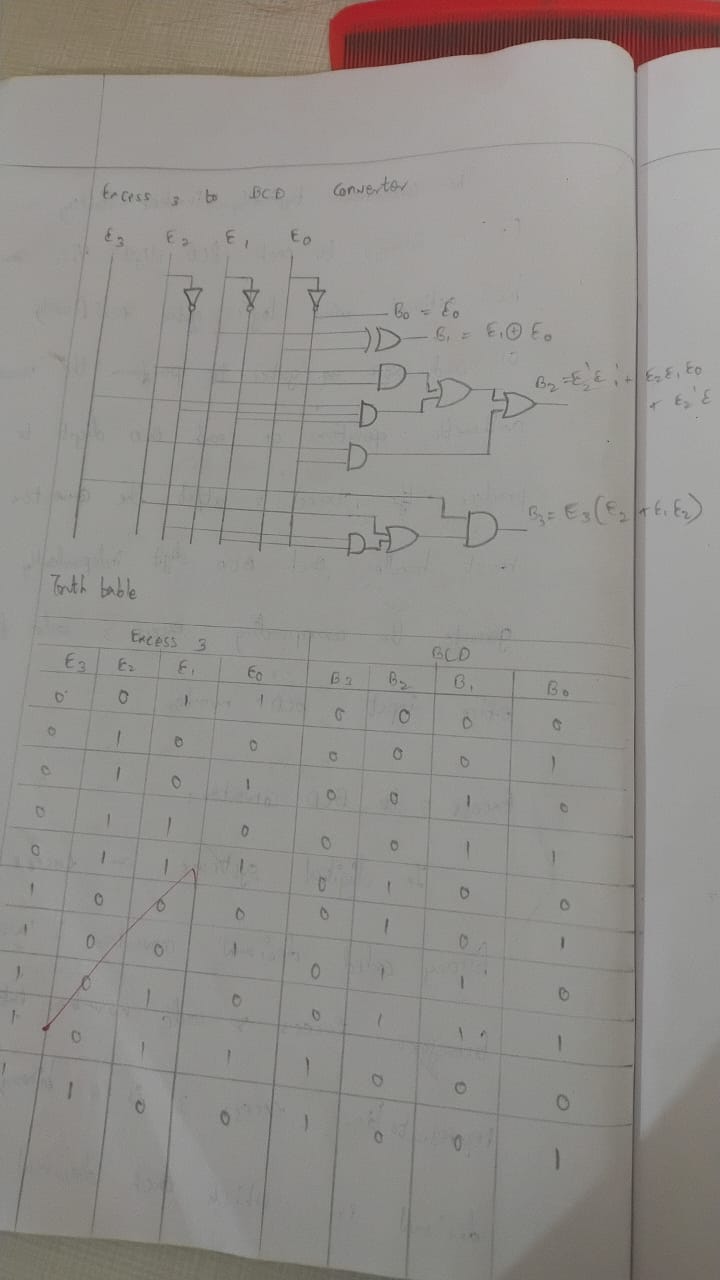 Excess 3 to BCD Convertor
E3 E2 E1 E0
B0 = E0
B1 = E1 ⊕ E0
B2 = E2'E1' + E2E1E0
+ E2'E
B3 = E3(E2 + E1E2)
Truth table
Excess 3 BCD
E3 E2 E1 E0 B3 B2 B1 B0
0 0 1 1 0 0 0 0
0 1 0 0 0 0 0 1
0 1 0 1 0 0 1 0
0 1 1 0 0 0 1 1
0 1 1 1 0 1 0 0
1 0 0 0 0 1 0 1
1 0 0 1 0 1 1 0
1 0 1 0 0 1 1 1
1 0 1 1 1 0 0 0
1 1 0 0 1 0 0 1